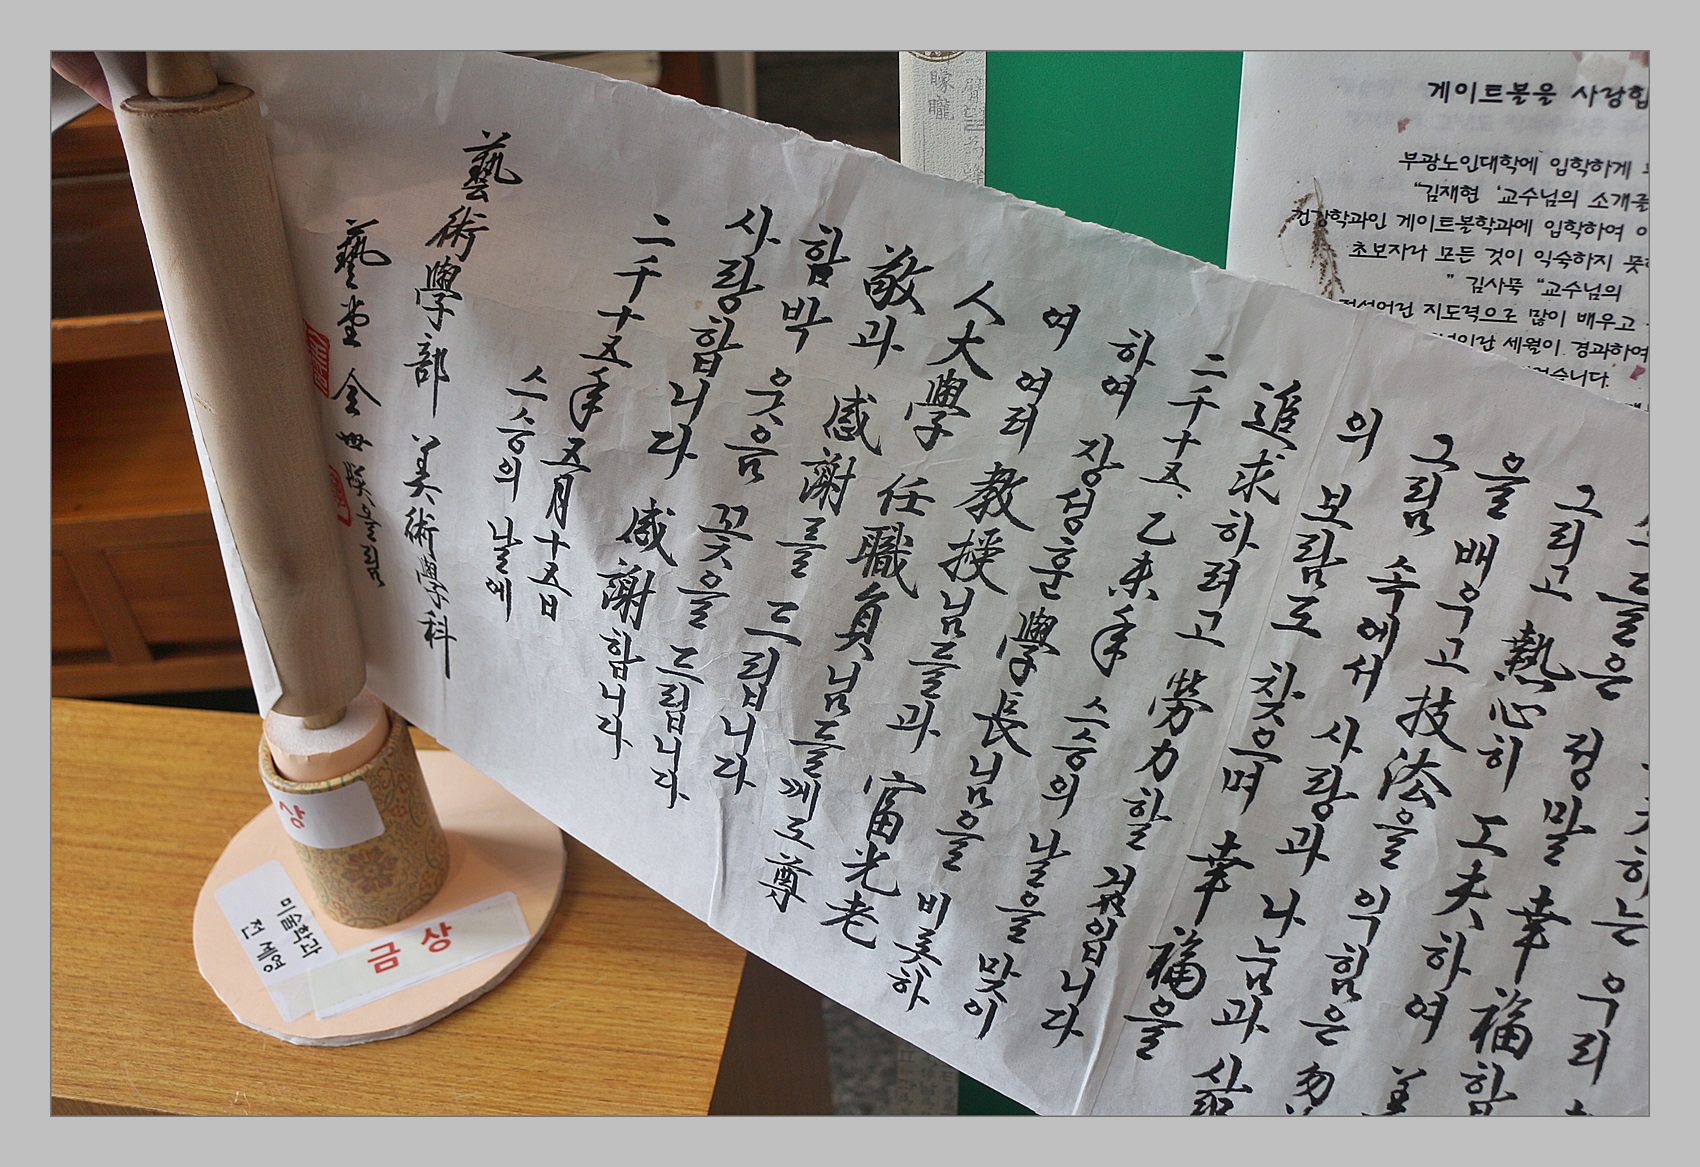 들은 정말 幸福합
그리고 熱心히 工夫하여 美
을 배우고 技法을 익힘은 勿
그림 속에서 사랑과 나눔과 삶
의 보람도 찾으며 幸福을
追求하려고 勞力할 것입니다
二千十五. 乙未年 스승의 날을 맞이
하여 장성훈 學長님을 비롯하
여 여러 教授님들과 富光老
人大學 任職員님들께도 尊
敬과 感謝를 드립니다
함박 웃음 꽃을 드립니다
사랑합니다 感謝합니다
二千十五年 五月十五日
스승의 날에
藝術學部 美術學科
藝堂 全世暎 올림
게이트볼을 사랑합
부광노인대학에 입학하게
"김재현 '교수님의 소개로
건강학과인 게이트볼학과에 입학하여
초보자라 모든 것이 익숙하지 못
" 김사묵 "교수님의
정성어린 지도력으로 많이 배우고
세월이 경과하여
상
미술학과
전세영
금상
朦朧